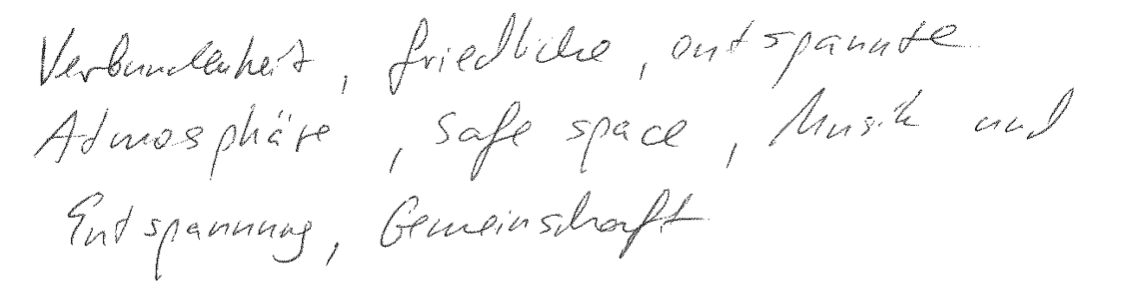 Verbundenheit, friedliche, entspannte
Atmosphäre, safe space, Musik und
Entspannung, Gemeinschaft